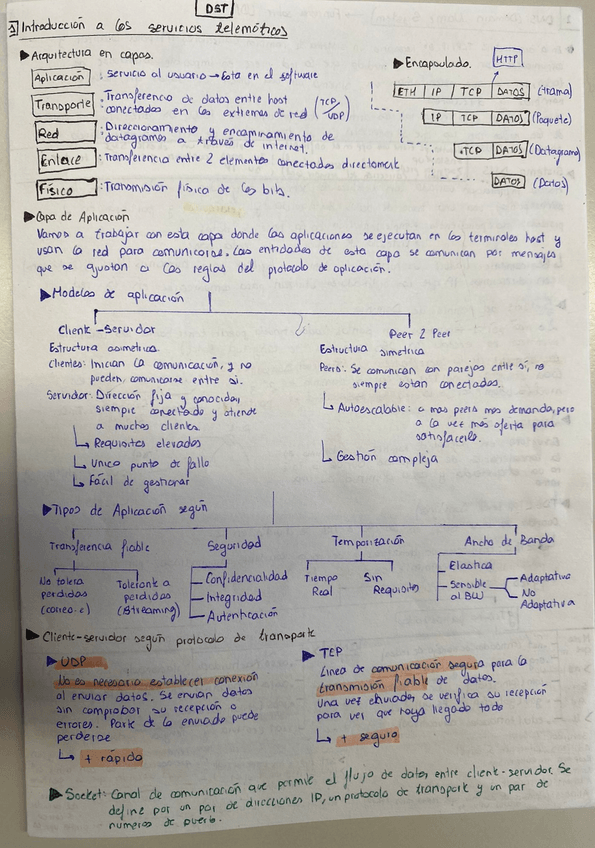 DST
1 Introducción a los servicios telemáticos
Arquitectura en capas.
Aplicación : Servicio al usuario → Esta en el software
Transporte : Transferencia de datos entre host
conectados en los extremos de red (TCP/UDP)
Red : Direccionamiento y encaminamiento de
datagramas a través de internet.
Enlace : Transferencia entre 2 elementos conectados directamente
Físico : Transmisión física de los bits.
Encapsulado.
HTTP
ETH IP TCP DATOS (trama)
IP TCP DATOS (Paquete)
TCP DATOS (Datagrama)
DATOS (Datos)
Capa de Aplicación
Vamos a trabajar con esta capa donde las aplicaciones se ejecutan en los terminales host y
usan la red para comunicarse. Las entidades de esta capa se comunican por mensajes
que se ajustan a las reglas del protocolo de aplicación.
Modelos de aplicación
Cliente-Servidor
Estructura asimetrica.
Clientes: Inician la comunicación, y no
pueden comunicarse entre si.
Servidor: Dirección fija y conocida,
siempre conectado y atiende
a muchos clientes.
Requisitos elevados
Unico punto de fallo
Fácil de gestionar
Peer 2 Peer
Estructura simetrica
Peers: Se comunican con parejas entre sí, no
siempre estan conectados.
Autoescalable: a mas peers mas demanda, pero
a la vez más oferta para
satisfacerla.
Gestión compleja
Tipos de Aplicación según
Transferencia fiable
No tolera
perdidas
(correo e)
Tolerante a
perdidas
(Streaming)
Seguridad
Confidencialidad
Integridad
Autenticación
Temporización
Tiempo
Real
Sin
Requisitos
Ancho de Banda
Elastica
Sensible
al BW
Adaptativa
No
Adaptativa
Cliente-servidor según protocolo de transporte
UDP
No es necesario establecer conexión
al enviar datos. Se envian datos
sin comprobar su recepción o
errores. Parte de lo enviado puede
perderse
+ rápido
TCP
Linea de comunicación segura para la
transmisión fiable de datos.
Una vez enviados se verifica su recepción
para ver que haya llegado todo
+ seguro
Socket: Canal de comunicación que permite el flujo de datos entre cliente-servidor. Se
define por un par de direcciones IP, un protocolo de transport y un par de
numeros de puerto.